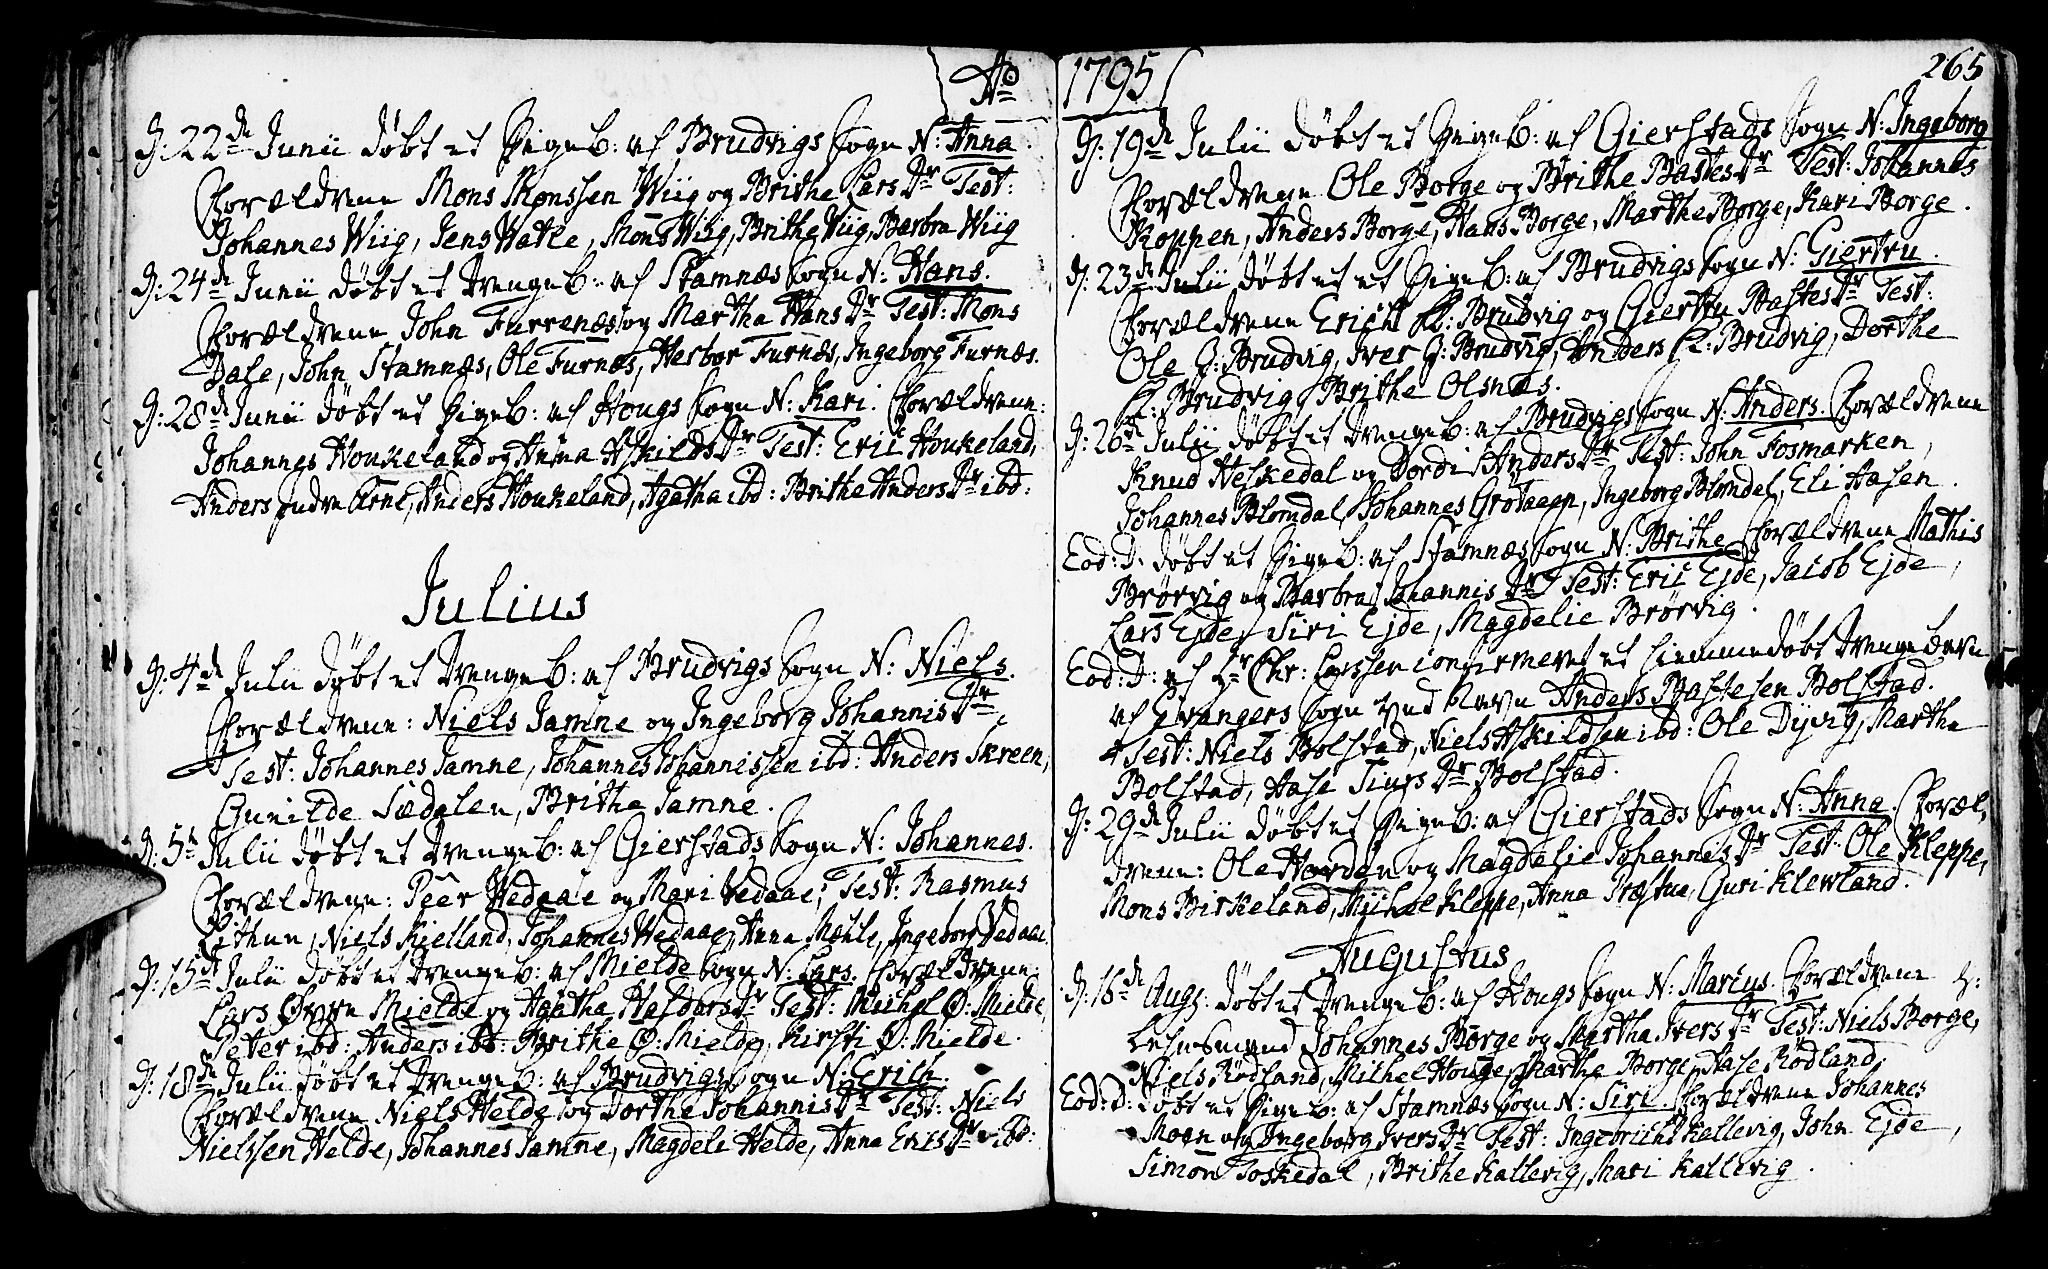 Ao
D: 22de Junii døbt et Pigeb: af Brudvigs Sogn N: Anna.
Forældrene Mons Monssen Wiig og Brithe Lars Dr Test:
Johannes Wiig, Jens Watle, Mons Wiig, Brithe Wiig, Barbra Wiig
D: 24de Junii døbt et Drengeb: af Stamnæs Sogn N: Hans.
Forældrene John Furrenæs og Martha Hans Dr Test: Mons
Dale, John Stamnæs, Ole Furnæs, Herbor Furnæs, Ingeborg Furnæs.
D: 28de Junii døbt et Pigeb: af Hougs Sogn N: Kari. Forældrene:
Johannes Houkeland og Anna Askilds Dr Test: Eric Houkeland,
Anders Indre Arne, Anders Houkeland, Agatha ibd: Brithe Anders Dr ibd:
Julius
D: 4de Julii døbt et Drengeb: af Brudvigs Sogn N: Niels.
Forældrene: Niels Jamne og Ingeborg Johannis Dr,
Test: Johannes Jamne, Johannes Johannissen ibd: Anders Skreen,
Gunilde Sædalen, Brithe Jamne.
D: 5te Julii døbt et Drengeb: af Gierstads Sogn N: Johannes.
Forældrene: Peer Wedaae og Mari Vedaae; Test: Rasmus
Rithun, Niels Kielland, Johannes Wedaae, Anna Mæhle, Ingeborg Vedaae.
D: 15de Julii døbt et Drengeb: af Mielde Sogn N: Lars. Forældrene
Lars Øvren Mielde og Agatha Haldors Dr Test: Michel Ø: Mielde,
Peter ibd: Anders ibd: Brithe Ø: Mielde, Kirsti Ø: Mielde.
D: 18de Julii døbt et Drengeb: af Brudvigs Sogn N: Erich.
Forældrene Niels Helde og Dorthe Johannis Dr Test: Niels
Nielssen Helde, Johannes Jamne, Magdeli Helde, Anna Erics Dr ibd:
1795
265
D: 19de Julii døbt et Pigeb: af Gierstads Sogn N: Ingeborg
Forældrene Ole Borge og Brithe Bastes Dr Test: Johannes
Koppen, Anders Borge, Hans Borge, Marthe Borge, Kari Borge.
D: 23de Julii døbt et et Pigeb: af Brudvigs Sogn N: Giertru.
Forældrene Ericht L: Brudvig og Giertru Bastes Dr Test:
Ole J: Brudvig, Iver J: Brudvig, Anders L: Brudvig, Dorthe
L: Brudvig, Brithe Olsnæs.
D: 26de Julii døbt et Drengeb: af Brudvigs Sogn N: Anders. Forældrene
Knud Heskedal og Tordi Anders Dr Test: John Fosmarken,
Johannes Blomdal, Johannes Grotaaen, Ingeborg Blomdal, Eli Aasen.
Eod: D: døbt et Pigeb: af Stamnæs Sogn N: Brithe. Forældrene Mathis
Brørvig og Barbra Johannis Dr Test: Eric Ejde, Jacob Ejde,
Lars Ejde, Siri Ejde, Magdelie Brørvig.
Eod: D: af Hr Chr: Larssen confirmeret et Hiemmedøbt Drengebarn
af Evangers Sogn ved Navn Anders Bastesen Bolstad.
Test: Niels Bolstad, Niels Askildsen ibd: Ole Dyvig, Martha
Bolstad, Aase Siurs Dr Bolstad.
D: 29de Julii døbt et Pigeb: af Gierstads Sogn N: Anna. Foræl,
drene: Ole Horden og Magdelie Johannis Dr Test: Ole Kleppe,
Mons Birkeland, Michel Kleppe, Anna Præstue, Guri Klewland.
Augustus
D: 16de Aug: døbt et Drengeb: af Hougs Sogn N: Marcus. Forældrene
Lehnsmand Johannes Borge og Martha Ivers Dr Test: Niels Borge,
Niels Rødland, Mihel Houge, Marthe Borge, Aase Rødland.
Eod: d: døbt et Pigeb: af Stamnæs Sogn N: Siri. Forældrene Johannes
Moen og Ingeborg Ivers Dr Test: Ingebricht Kallevig, John Ejde,
Simon Toskedal, Brithe Kallevig, Mari Kallevig.